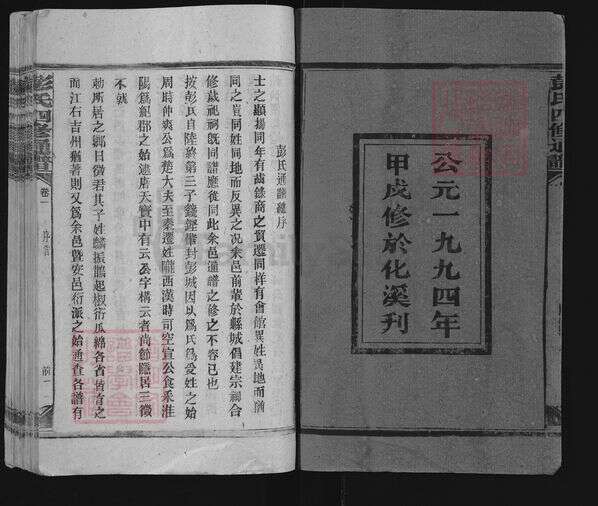 彭氏四修通譜
公元一九九四年
甲戌修於化溪刋
彭氏通譜總序
士之顯揚同年有齒錄商之貿遷同祥有會館異姓異地而猶
同之豈同姓同地而反異之况余邑前輩於縣城倡建宗祠合
修蒇祀祠旣同譜應從同此余邑通譜之修之不容已也
按彭氏自陸終第三子籛鏗懋封彭城因以爲氏爲受姓之始
周時仲爽公爲楚大夫至秦遷姓隴西漢時司空宣公食釆淮
陽爲紀郡之始逮唐天寶中有云公字構云者尚節隱居三徵
不就
勅所居之鄉曰徵君其子姓麟振鵲起椒衍瓜綿各省皆有之
而江右吉州藉著則又爲余邑暨安邑衍派之始通查各譜有
彭氏四修通譜
卷一
序言
前一